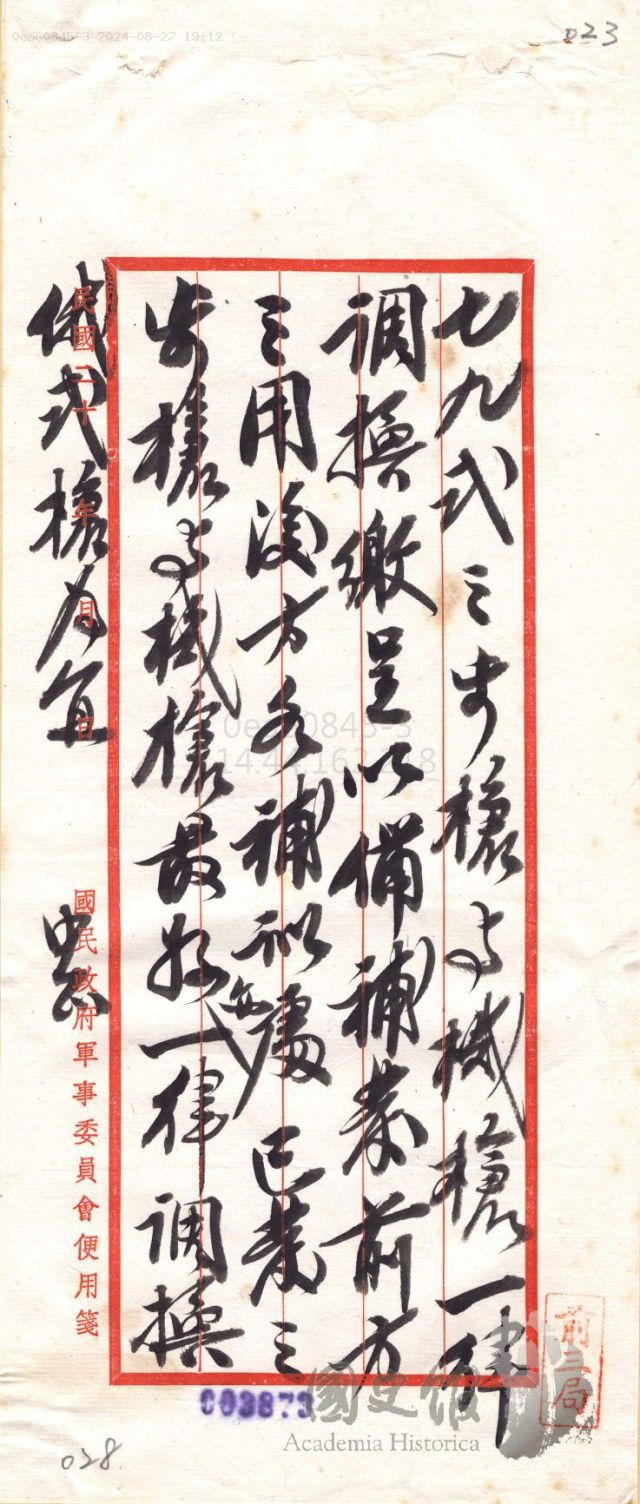 0ea60845-3 2024-08-27 19:12
023
七九式之步槍與機槍一律
調換繳呈以備補充前方
之用後方各補訓處已發之
步槍與機槍最好亦一律調換
俄式槍為宜
中正
民國二十 年 月 日
國民政府軍事委員會便用箋
003873
國史館
Academia Historica
028